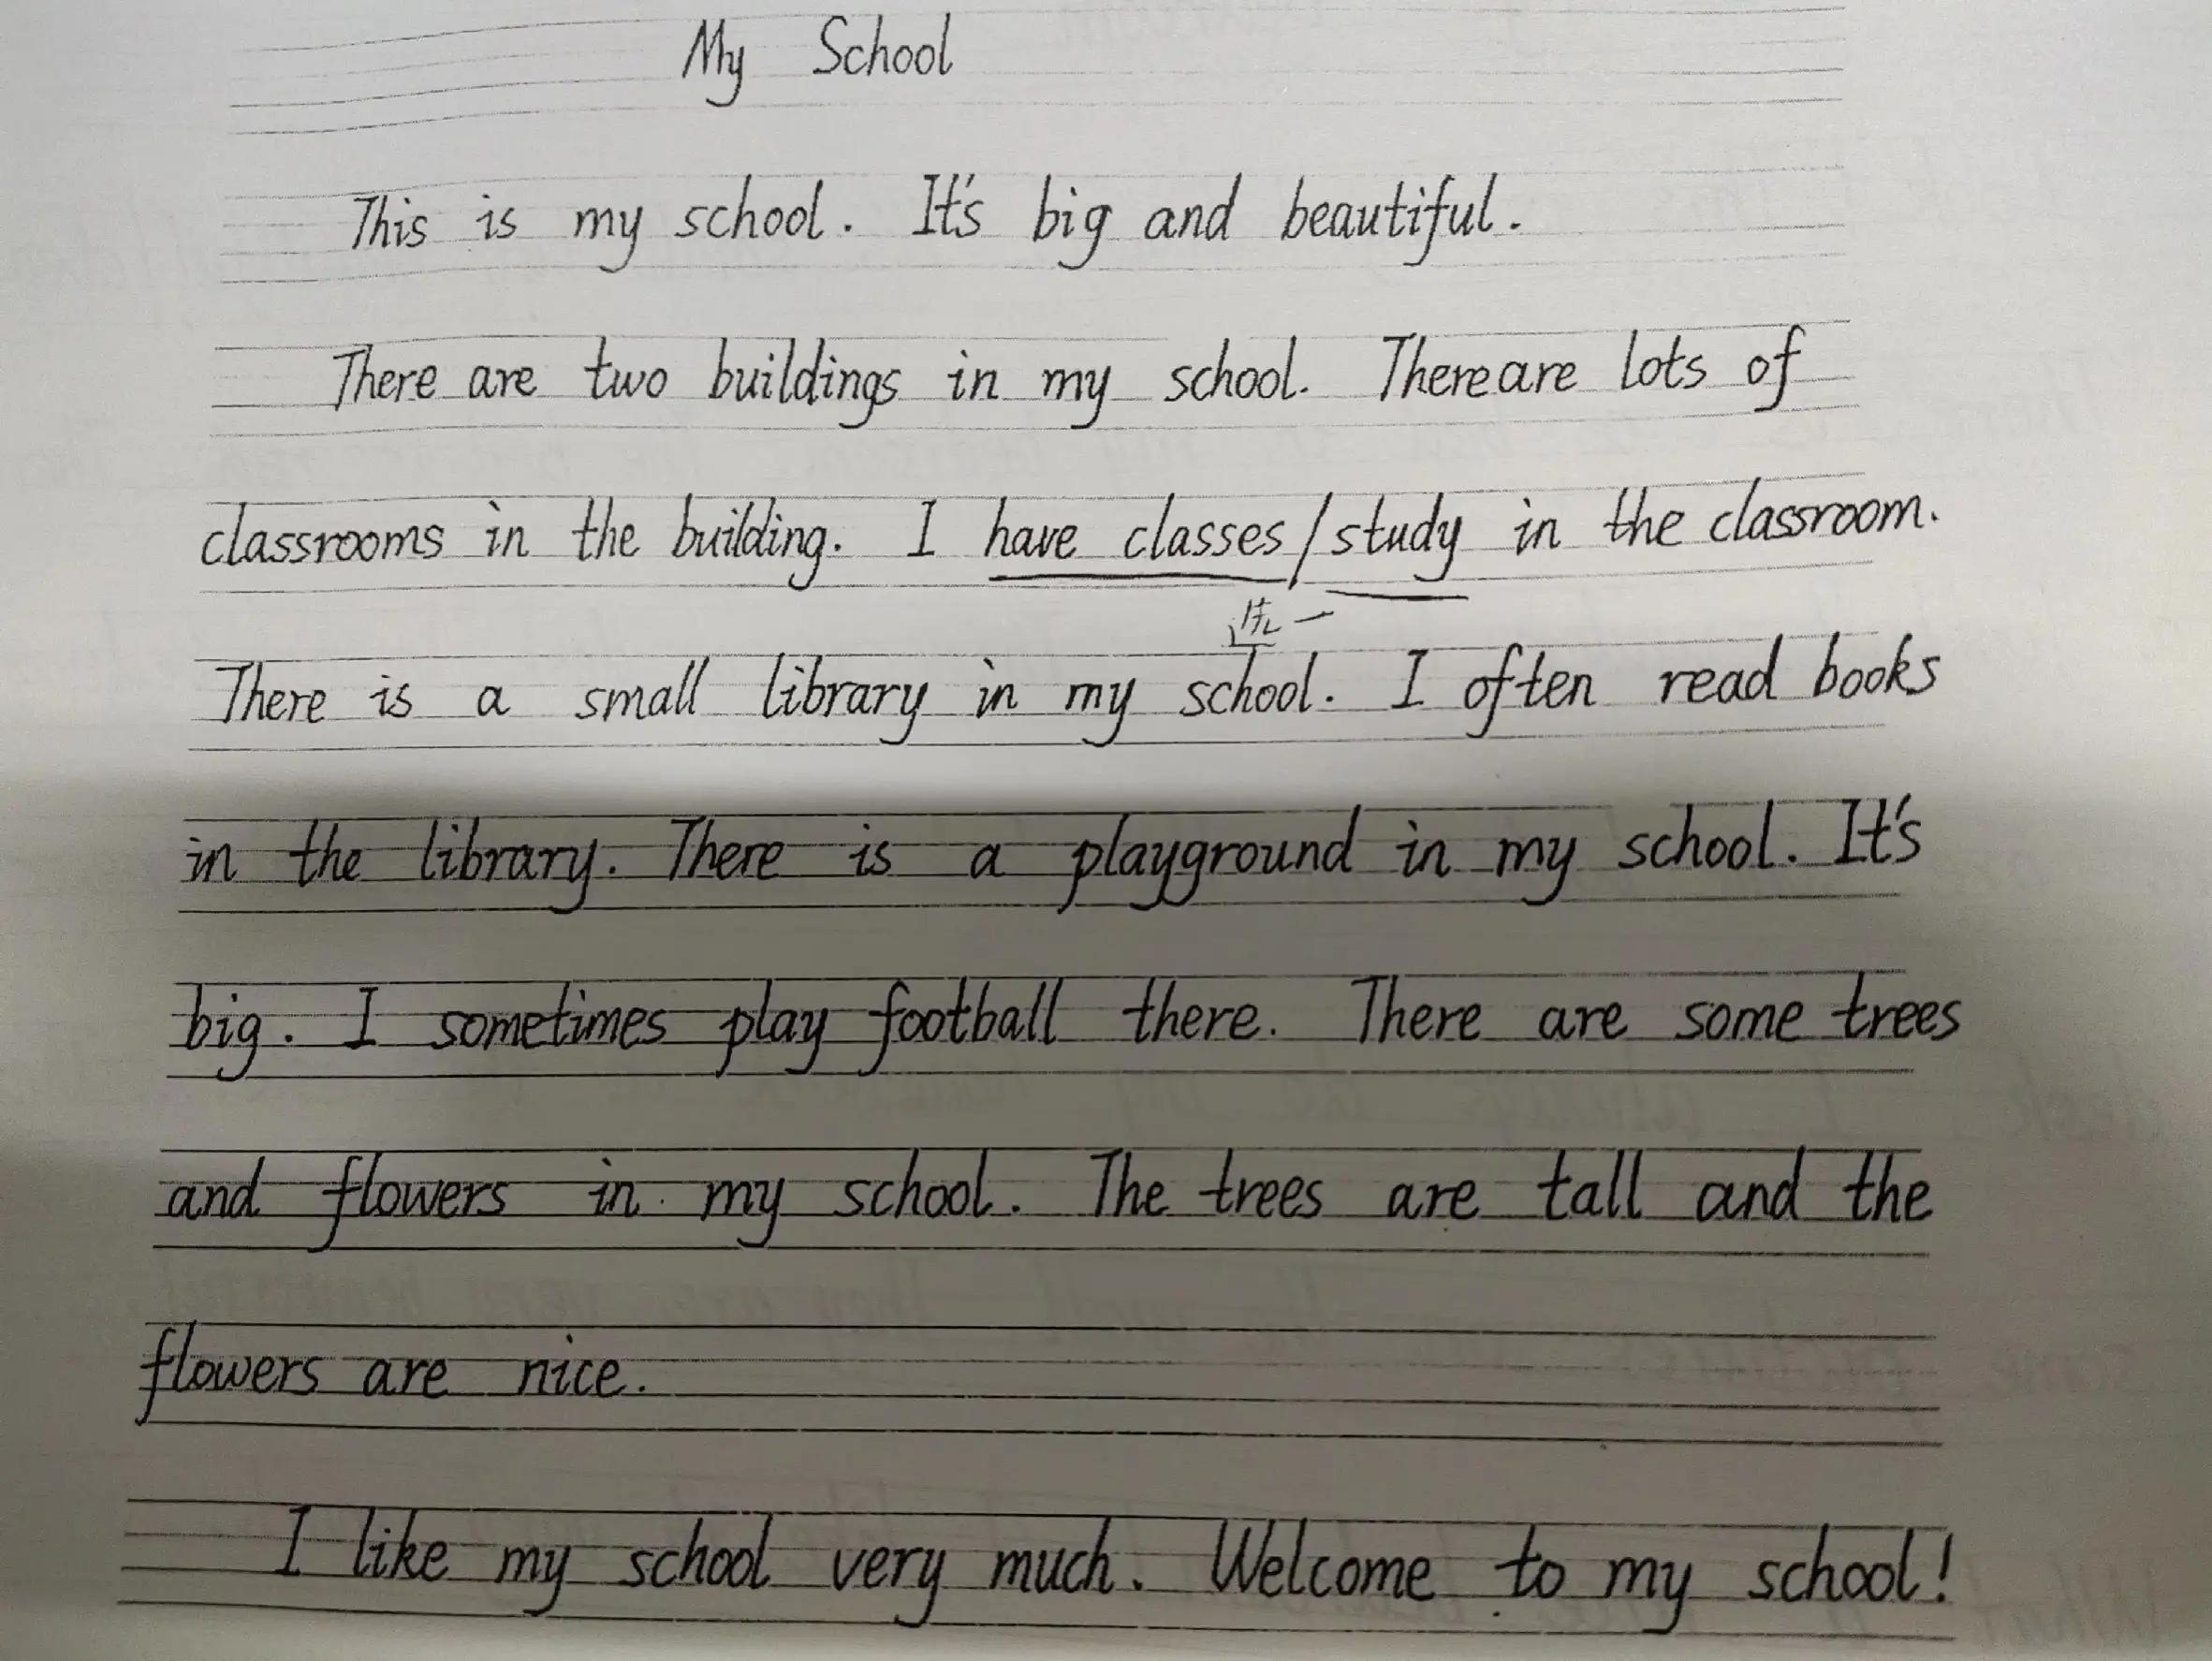 My School
This is my school. It's big and beautiful.
There are two buildings in my school. There are lots of
classrooms in the building. I have classes/study in the classroom.
选一
There is a small library in my school. I often read books
in the library. There is a playground in my school. It's
big. I sometimes play football there. There are some trees
and flowers in my school. The trees are tall and the
flowers are nice.
I like my school very much. Welcome to my school!